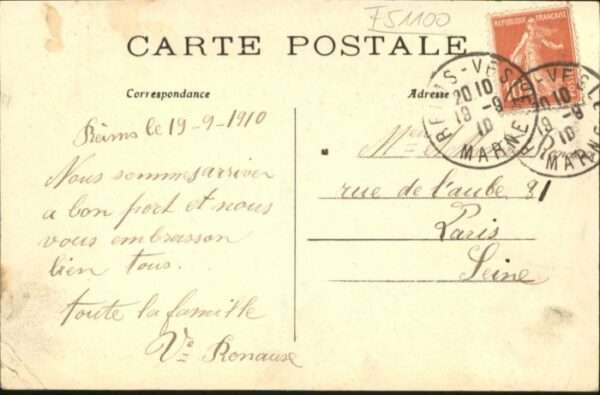 F51100
REPUBLIQUE FRANÇAISE
CARTE POSTALE
Correspondance
Adresse
REIMS-VESLE
20 10
19 - 9
10
MARNE
VESLE
20 10
19 - 9
10
MARNE
Reims le 19-9-1910
Nous sommes arriver
a bon port et nous
vous embrasson
bien tous.
toute la famille
Vᵉ
rue de l'aube 81
Paris
Seine